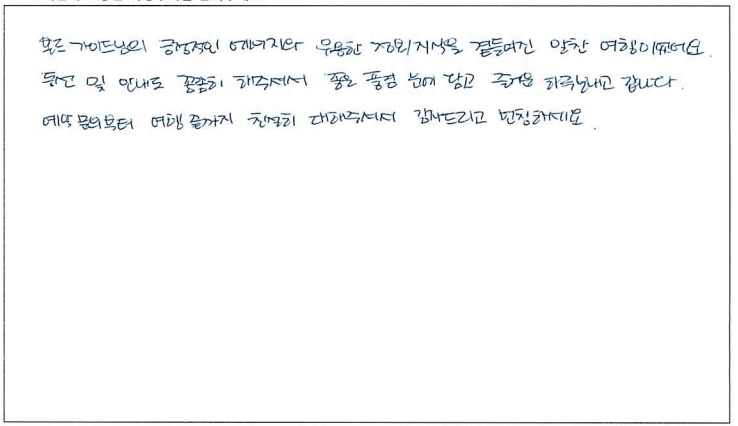 가이드님의 긍정적인 에너지와 유용한 정보 지식을 곁들여진 알찬 여행이였어요.
및 안내도 꼼꼼히 해주셔서 좋은 풍경 눈에 담고 즐거운 하루 보내고 갑니다.
예약 문의부터 여행 끝까지 친절히 대해주셔서 감사드리고 번창하세요.